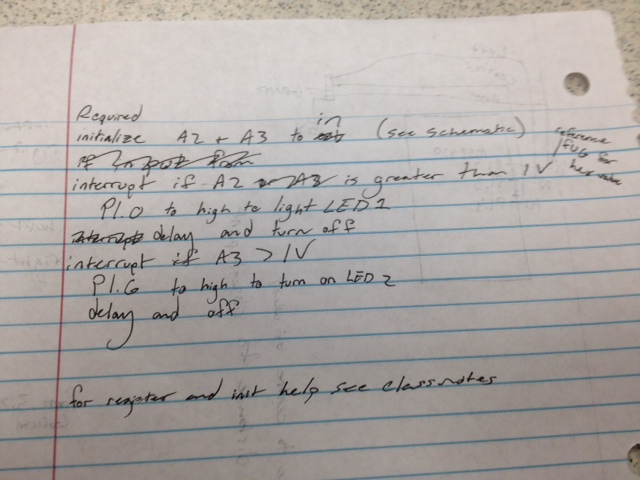 Required
initialize A2 + A3 to in (see schematic)
interrupt if A2 or A3 is greater than 1V
P1.0 to high to light LED1
Interrupt delay and turn off
interrupt if A3 > 1V
P1.6 to high to turn on LED2
delay and off
for register and init help see class notes